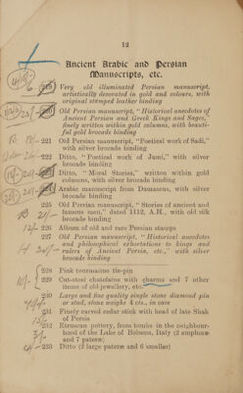 12
Ancient Arabic and Persian
Manuscripts, etc.
219 Very old illuminated Persian manuscript,
artistically decorated in gold and colours, with
original stamped leather binding
Old Persian manuscript, "Historical anecdotes of
Ancient Persian and Greek Kings and Sages,"
finely written within gold columns, with beauti-
ful gold brocade binding
221 Old Persian manuscript, "Poetical work of Sadi,"
with silver brocade binding
222 Ditto, "Poetical work of Jami," with silver
brocade binding
Ditto, "Moral Stories," written within gold
columns, with silver brocade binding
Arabic manuscript from Damascus, with silver
brocade binding
225 Old Persian manuscript, "Stories of ancient and
famous men," dated 1112, A.H., with old silk
brocade binding
226 Album of old and rare Persian stamps
227 Old Persian manuscript, "Historical anecdotes
and philosophical exhortations to kings and
rulers of Ancient Persia, etc.," with silver
brocade binding
228 Pink tourmaline tie-pin
229 Cut-steel chatelaine with charms and 7 other
items of old jewellery, etc.
230 Large and fine quality single stone diamond pin
or stud, stone weighs 4 cts., in case
231 Finely carved cedar stick with head of late Shah
of Persia
232 Etruscan pottery, from tombs in the neighbour-
hood of the Lake of Bolsena, Italy (2 amphoræ
and 7 pateræ)
233 Ditto (2 large pateræ and 6 smaller)